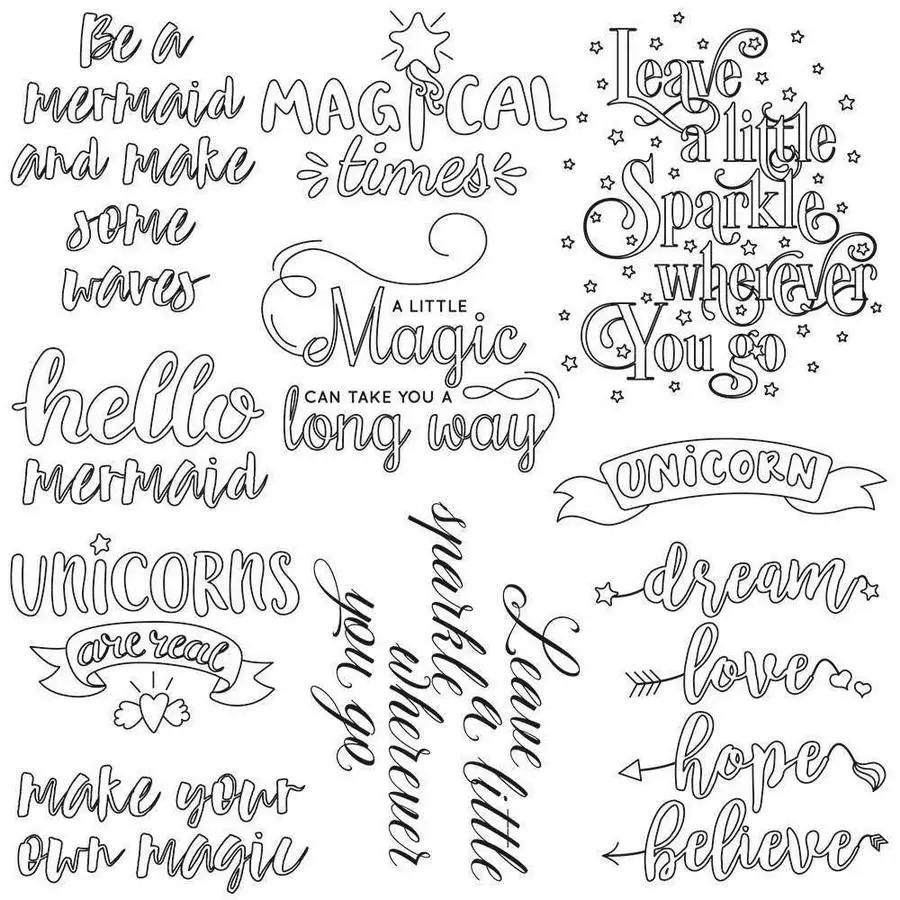 Be a
mermaid
and make
some
waves
MAGICAL
times
Leave
a little
Sparkle
wherever
You go
A LITTLE
Magic
CAN TAKE YOU A
long way
hello
mermaid
UNICORN
UNICORNS
are real
Leave
sparkle a little
wherever
you go
dream
love
hope
believe
make your
own magic